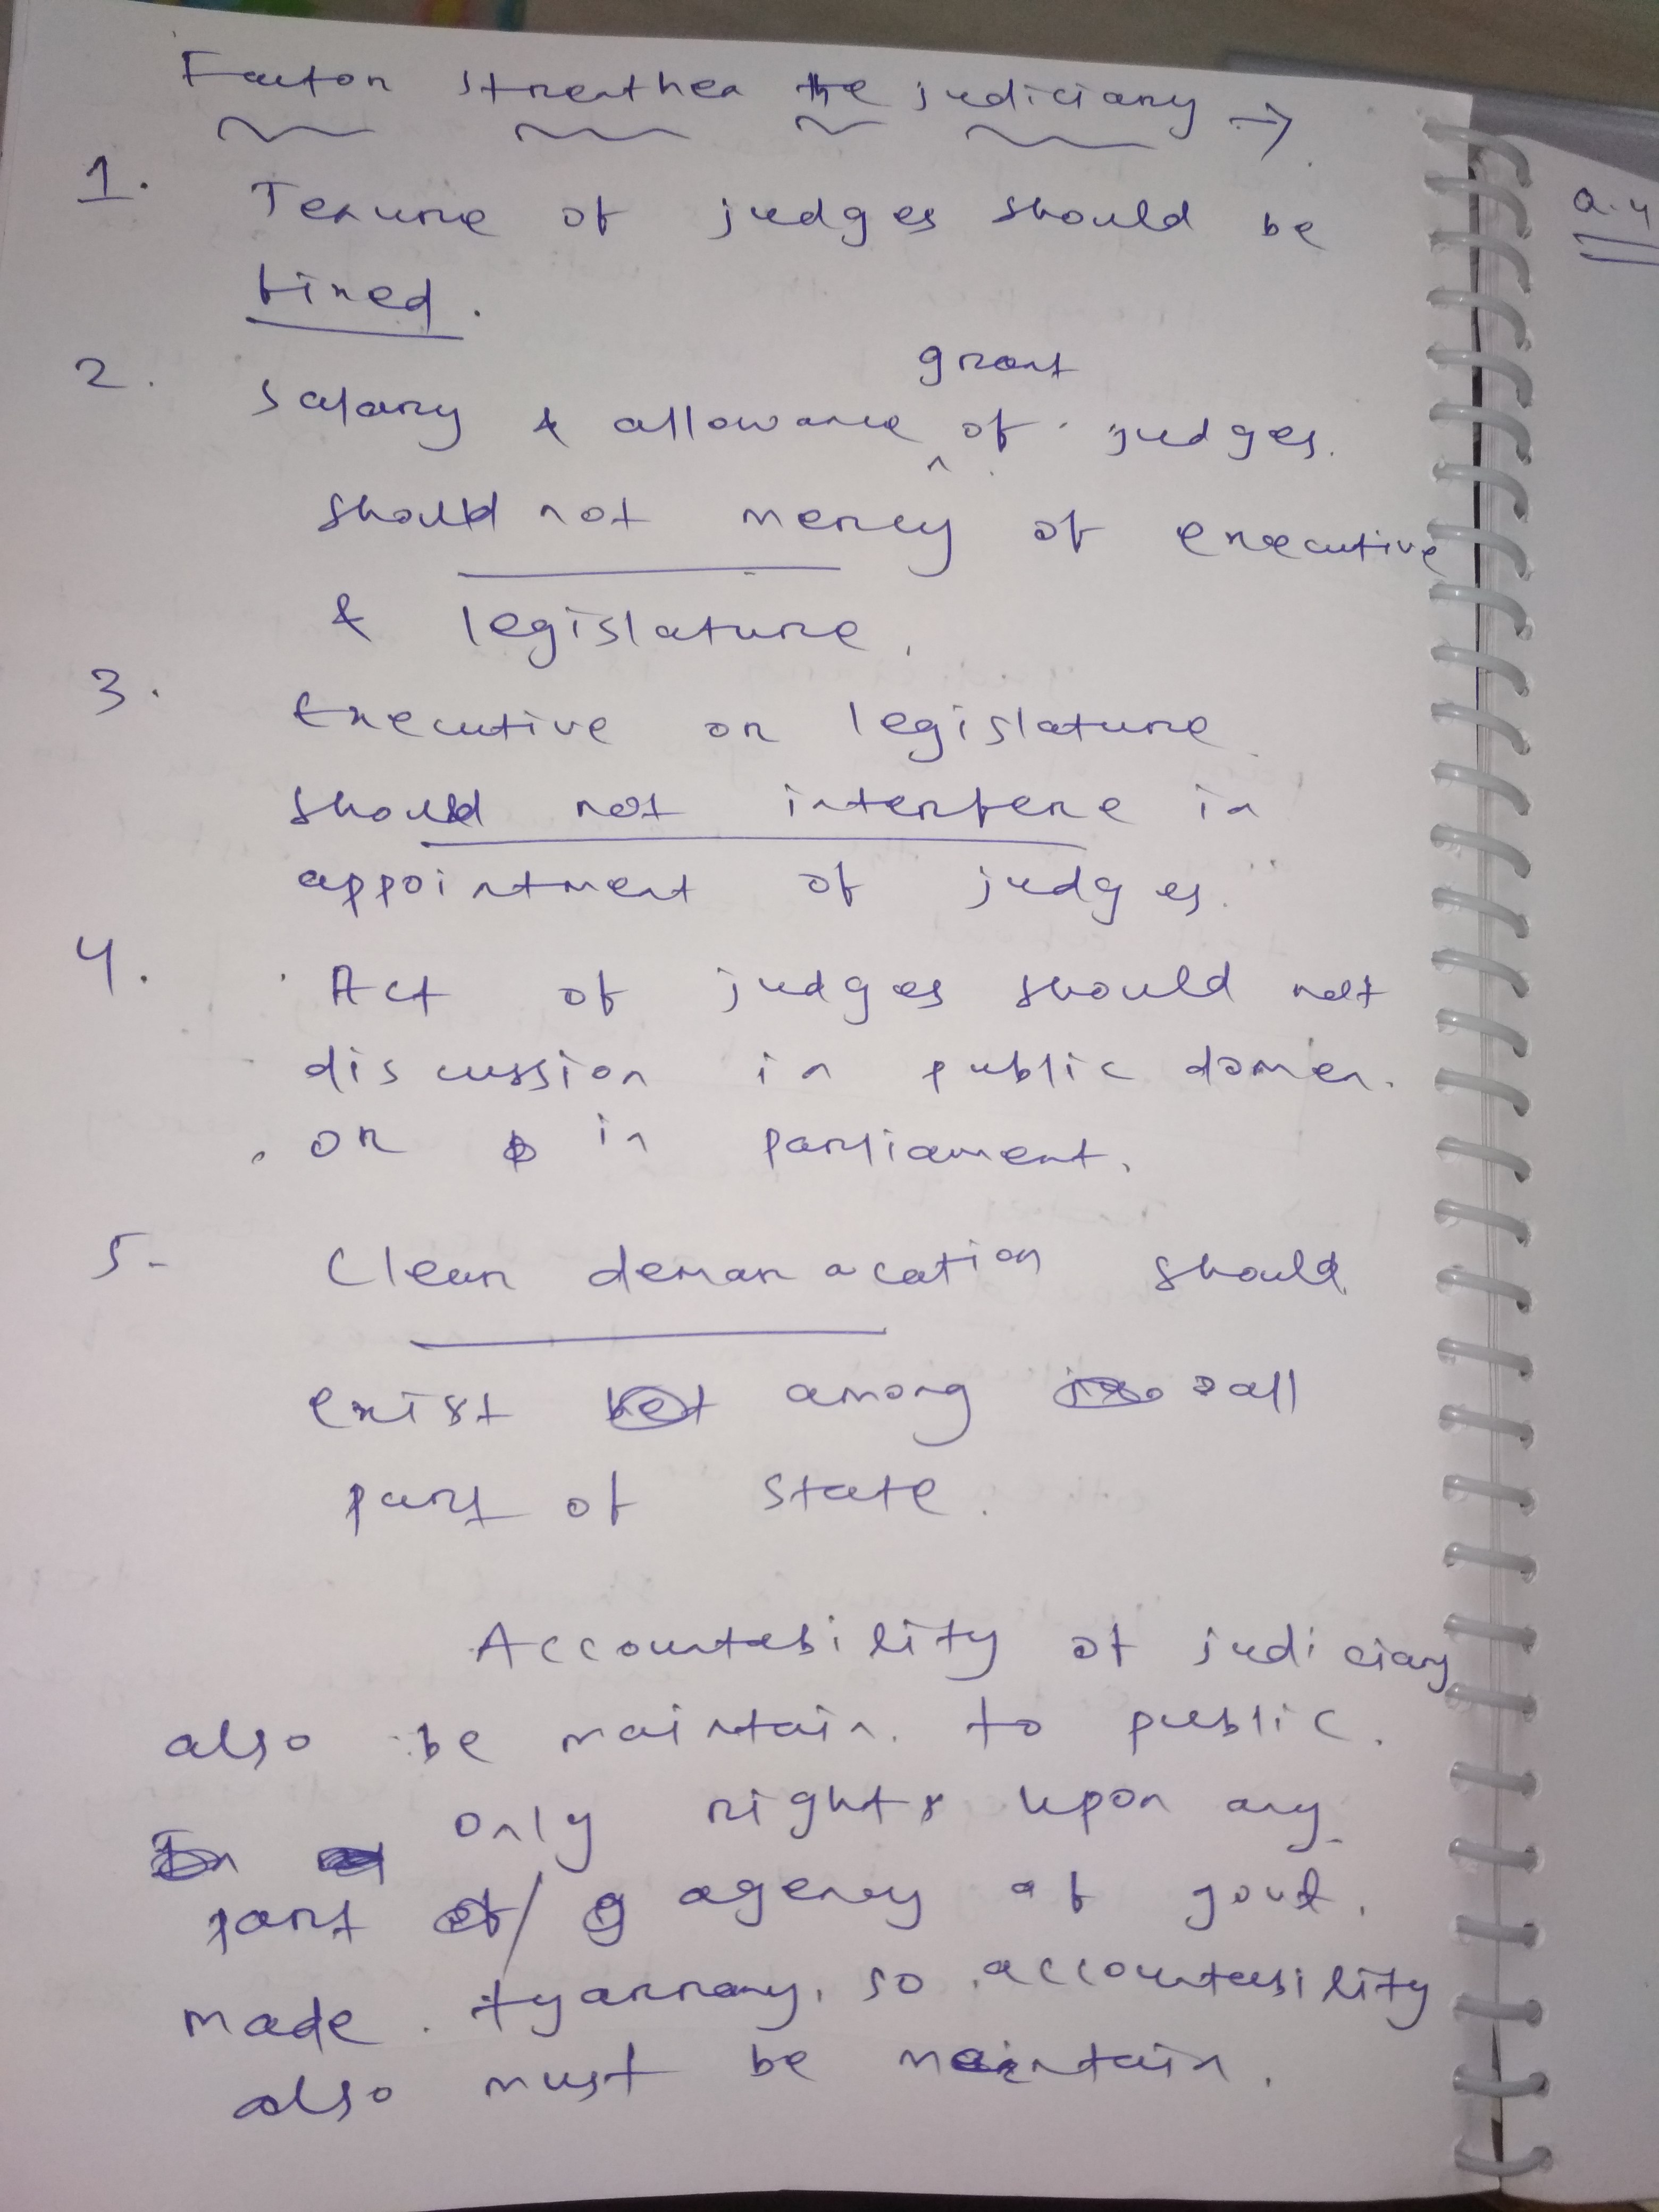 Factor streathen the judiciary →
1. Tenure of judges should be
fixed.
grant
2. salary & allowance ^ of judges.
should not mercy of executive
& legislature.
3. Executive or legislature
should not interfere in
appointment of judges.
4. Act of judges should not
discussion in public domen.
or in parliament.
5- Clear demaracation should
exist among all
part of state.
Accountability of judiciary
also be maintain to public.
only rights upon any
part / agency of govt.
made tyarrany, so accountability
also must be maintain.
Q.4